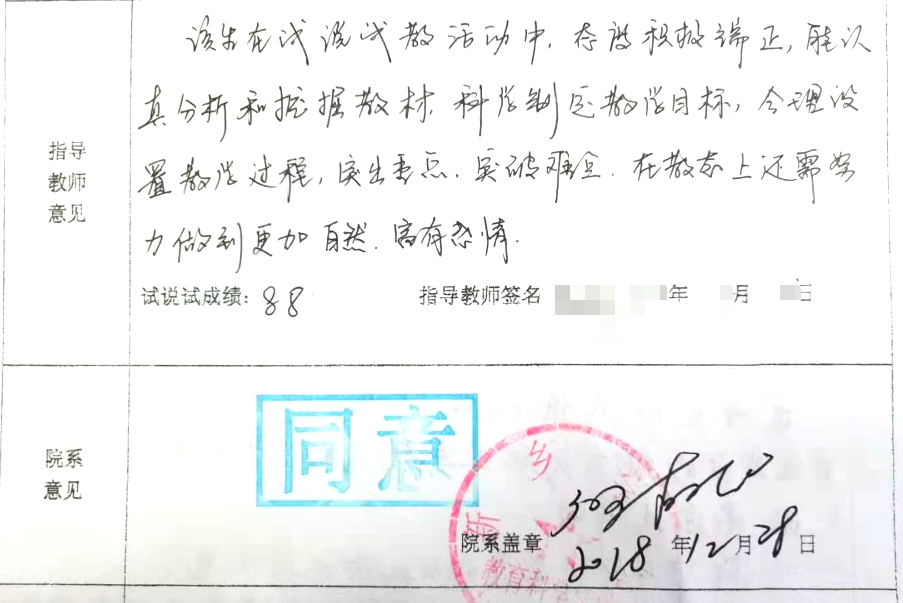 指导
教师
意见
该生在试说试教活动中,态度积极端正,能认
真分析和挖掘教材,科学制定教学目标,合理设
置教学过程,突出重点、突破难点.在教态上还需努
力做到更加自然.富有感情.
试说试成绩:88 指导教师签名 年 月 日
院系
意见
同意
新乡
教育科
院系盖章 2018年12月28日